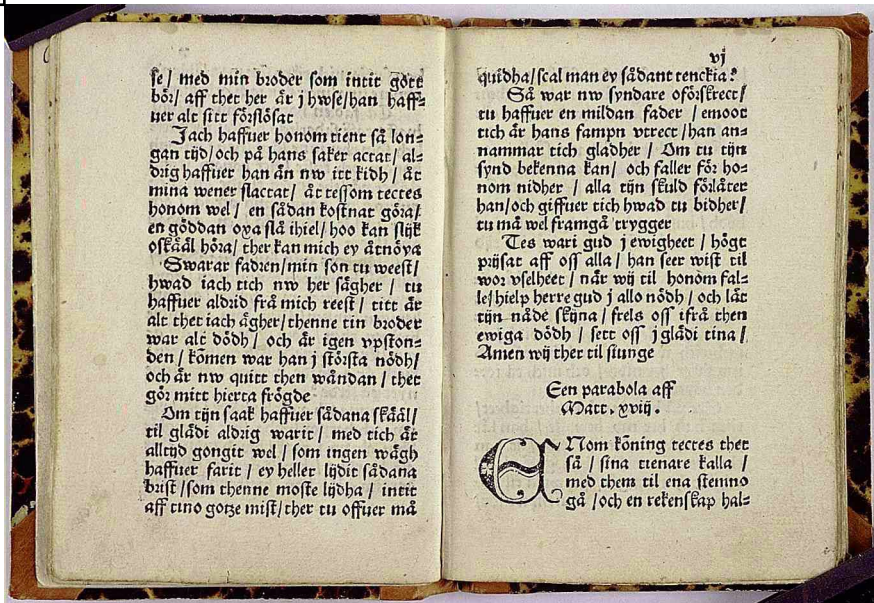 se / med min broder som intit gött
bör / aff thet her är j hwse / han haff-
uer alt sitt förslösat
Jach haffuer honom tient så lon-
gan tijd / och på hans saker actat / al-
drig haffuer han än nw itt kidh / åt
mina wener slactat / åt tessom tectes
honom wel / en sådan kostnat göra /
en göddan oxa slå ihiel / hoo kan slijk
oskääl höra / ther kan mich ey åtnöya
Swarar fadren / min son tu weest /
hwad iach tich nw her sägher / tu
haffuer aldrid frå mich reest / titt är
alt thet iach ägher / thenne tin broder
war alt dödh / och är igen vpston-
den / kömen war han j största nödh /
och är nw quitt then wåndan / thet
gör mitt hierta frögde
Om tijn saak haffuer sådana skääl /
til glädi aldrig warit / med tich är
alltijd gongit wel / som ingen wägh
haffuer farit / ey heller lijdit sådana
brist / som thenne moste lijdha / intit
aff tino gotze mist / ther tu offuer må
vj
quidha / scal man ey sådant tenckia?
Så war nw syndare oförskrect /
tu haffuer en mildan fader / emoot
tich är hans fampn vtrect / han an-
nammar tich gladher / Om tu tijn
synd bekenna kan / och faller för ho-
nom nidher / alla tijn skuld förlåter
han / och giffuer tich hwad tu bidher /
tu må wel framgå trygger
Tes wari gud j ewigheet / högt
prijsat aff oss alla / han seer wist til
wor vselheet / när wij til honom fal-
le / hielp herre gud j allo nödh / och låt
tijn nåde skijna / frels oss ifrå then
ewiga dödh / sett oss j glädi tina /
Amen wij ther til siunge
Een parabola aff
Matt. xviij.
ENom köning tectes thet
så / sina tienare kalla /
med them til ena stemno
gå / och en rekenskap hal-